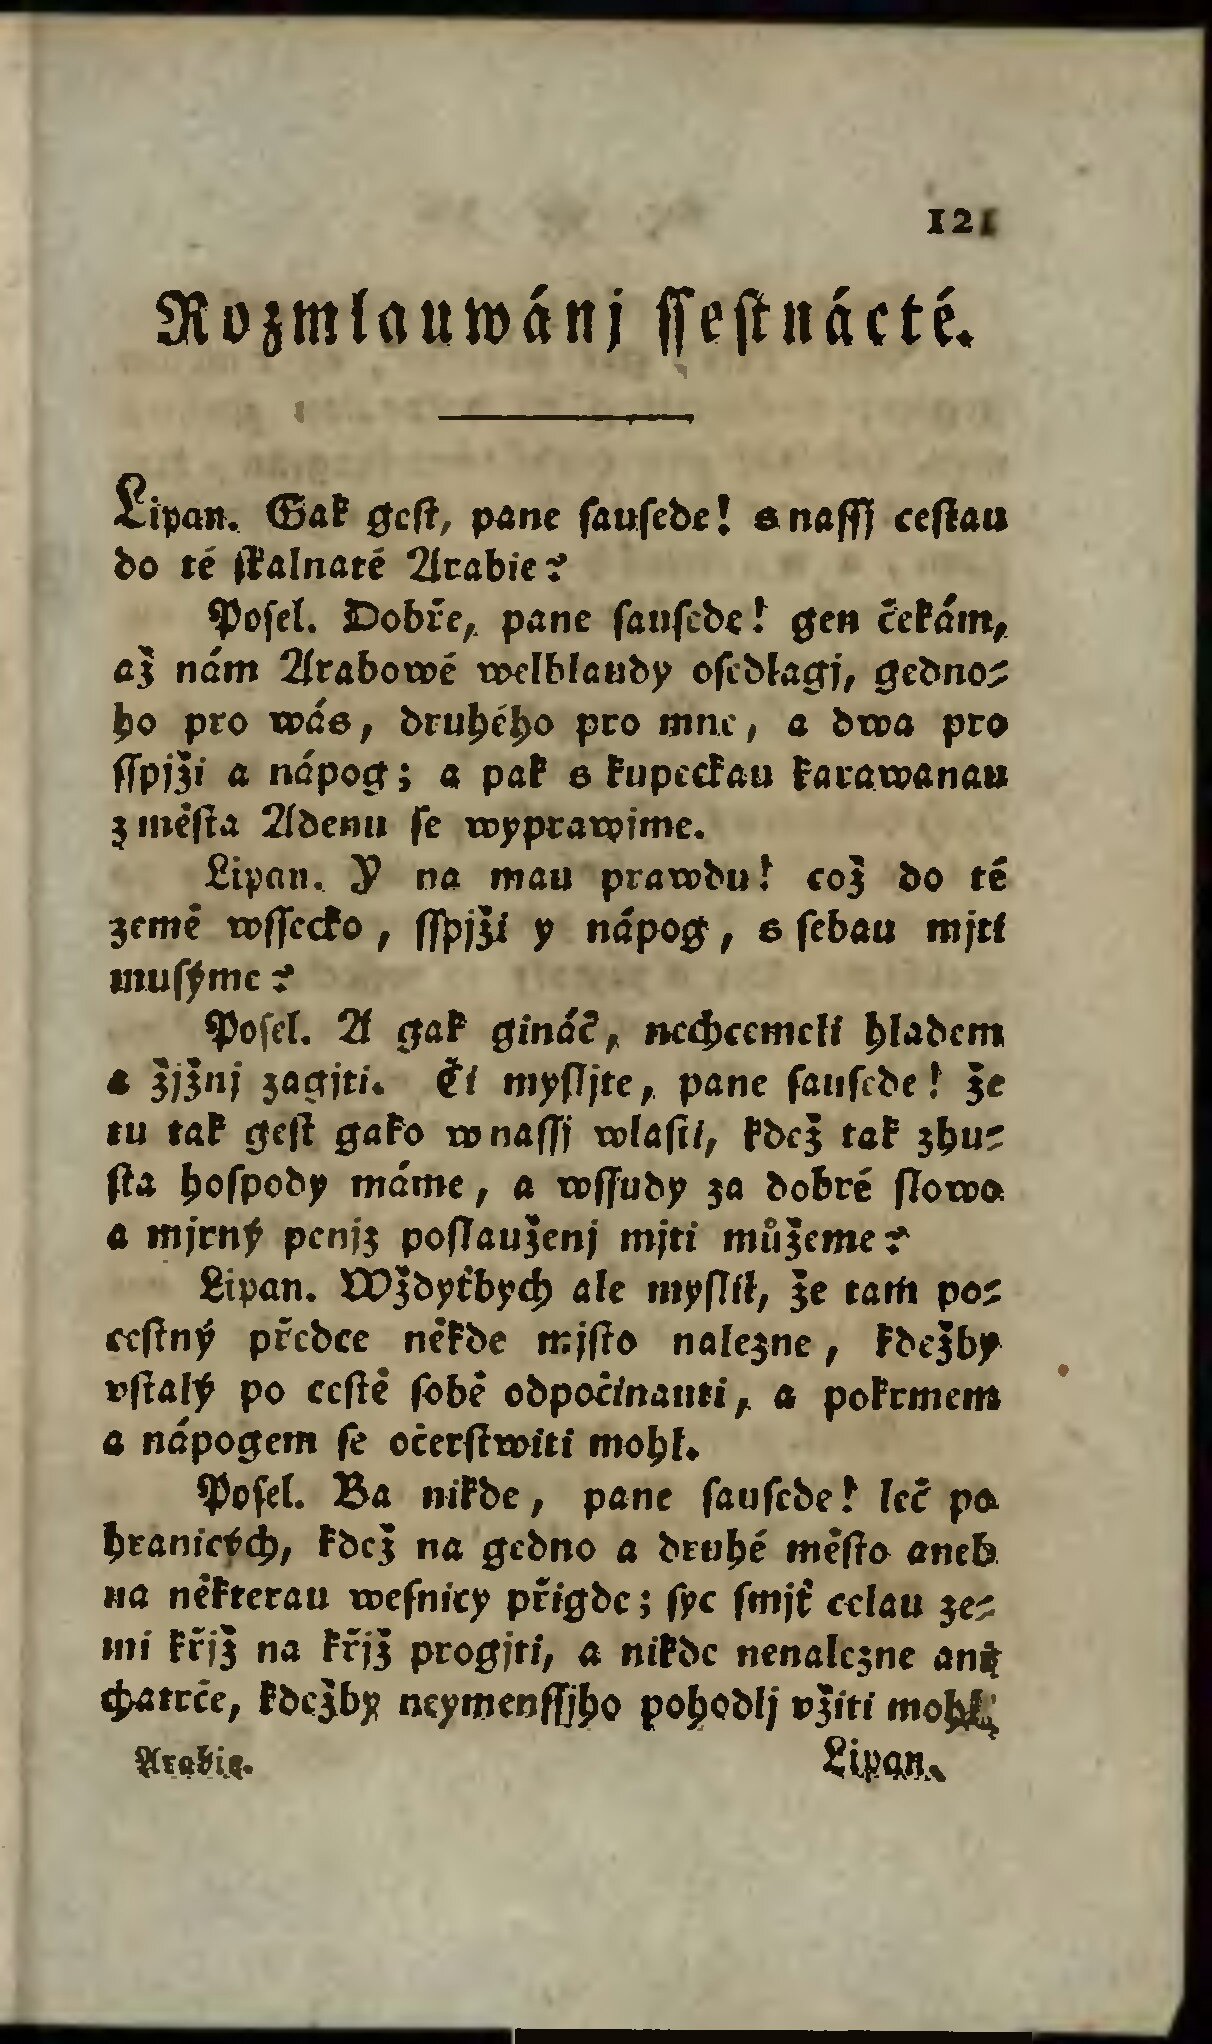 121
Rozmlauwánj ſſeſtnácté.
Lipan. Gak geſt, pane ſauſede! s naſſj ceſtau
do té ſkalnaté Arabie?
Poſel. Dobře, pane ſauſede! gen čekám,
až nám Arabowé welblaudy oſedlagj, gedno⸗
ho pro wás, druhého pro mne, a dwa pro
ſſpjži a nápog; a pak s kupeckau karawanau
z města Adenu ſe wyprawjme.
Lipan. Y na mau prawdu! což do té
země wſſecko, ſſpjži y nápog, s ſebau mjti
muſýme?
Poſel. A gak gináč, nechcemeli hladem
a žjžnj zagjti. Či myſljte, pane ſauſede! že
tu tak geſt gako w naſſj wlaſti, kdež tak zhu⸗
ſta hoſpody máme, a wſſudy za dobré ſlowo
a mjrný penjz poſlauženj mjti můžeme?
Lipan. Wždyťbych ale myſlil, že tam po⸗
ceſtný předce někde mjſto nalezne, kdežby
vſtalý po ceſtě ſobě odpočinauti, a pokrmem
a nápogem ſe očerſtwiti mohl.
Poſel. Ba nikde, pane ſauſede! leč po
hranicých, kdež na gedno a druhé měſto aneb
na některau weſnicy přigde; ſyc ſmjť celau ze⸗
mi křjž na křjž progjti, a nikde nenalezne ani
chatrče, kdežby neymenſſjho pohodlj vžiti mohl.
Arabie.
Lipan.